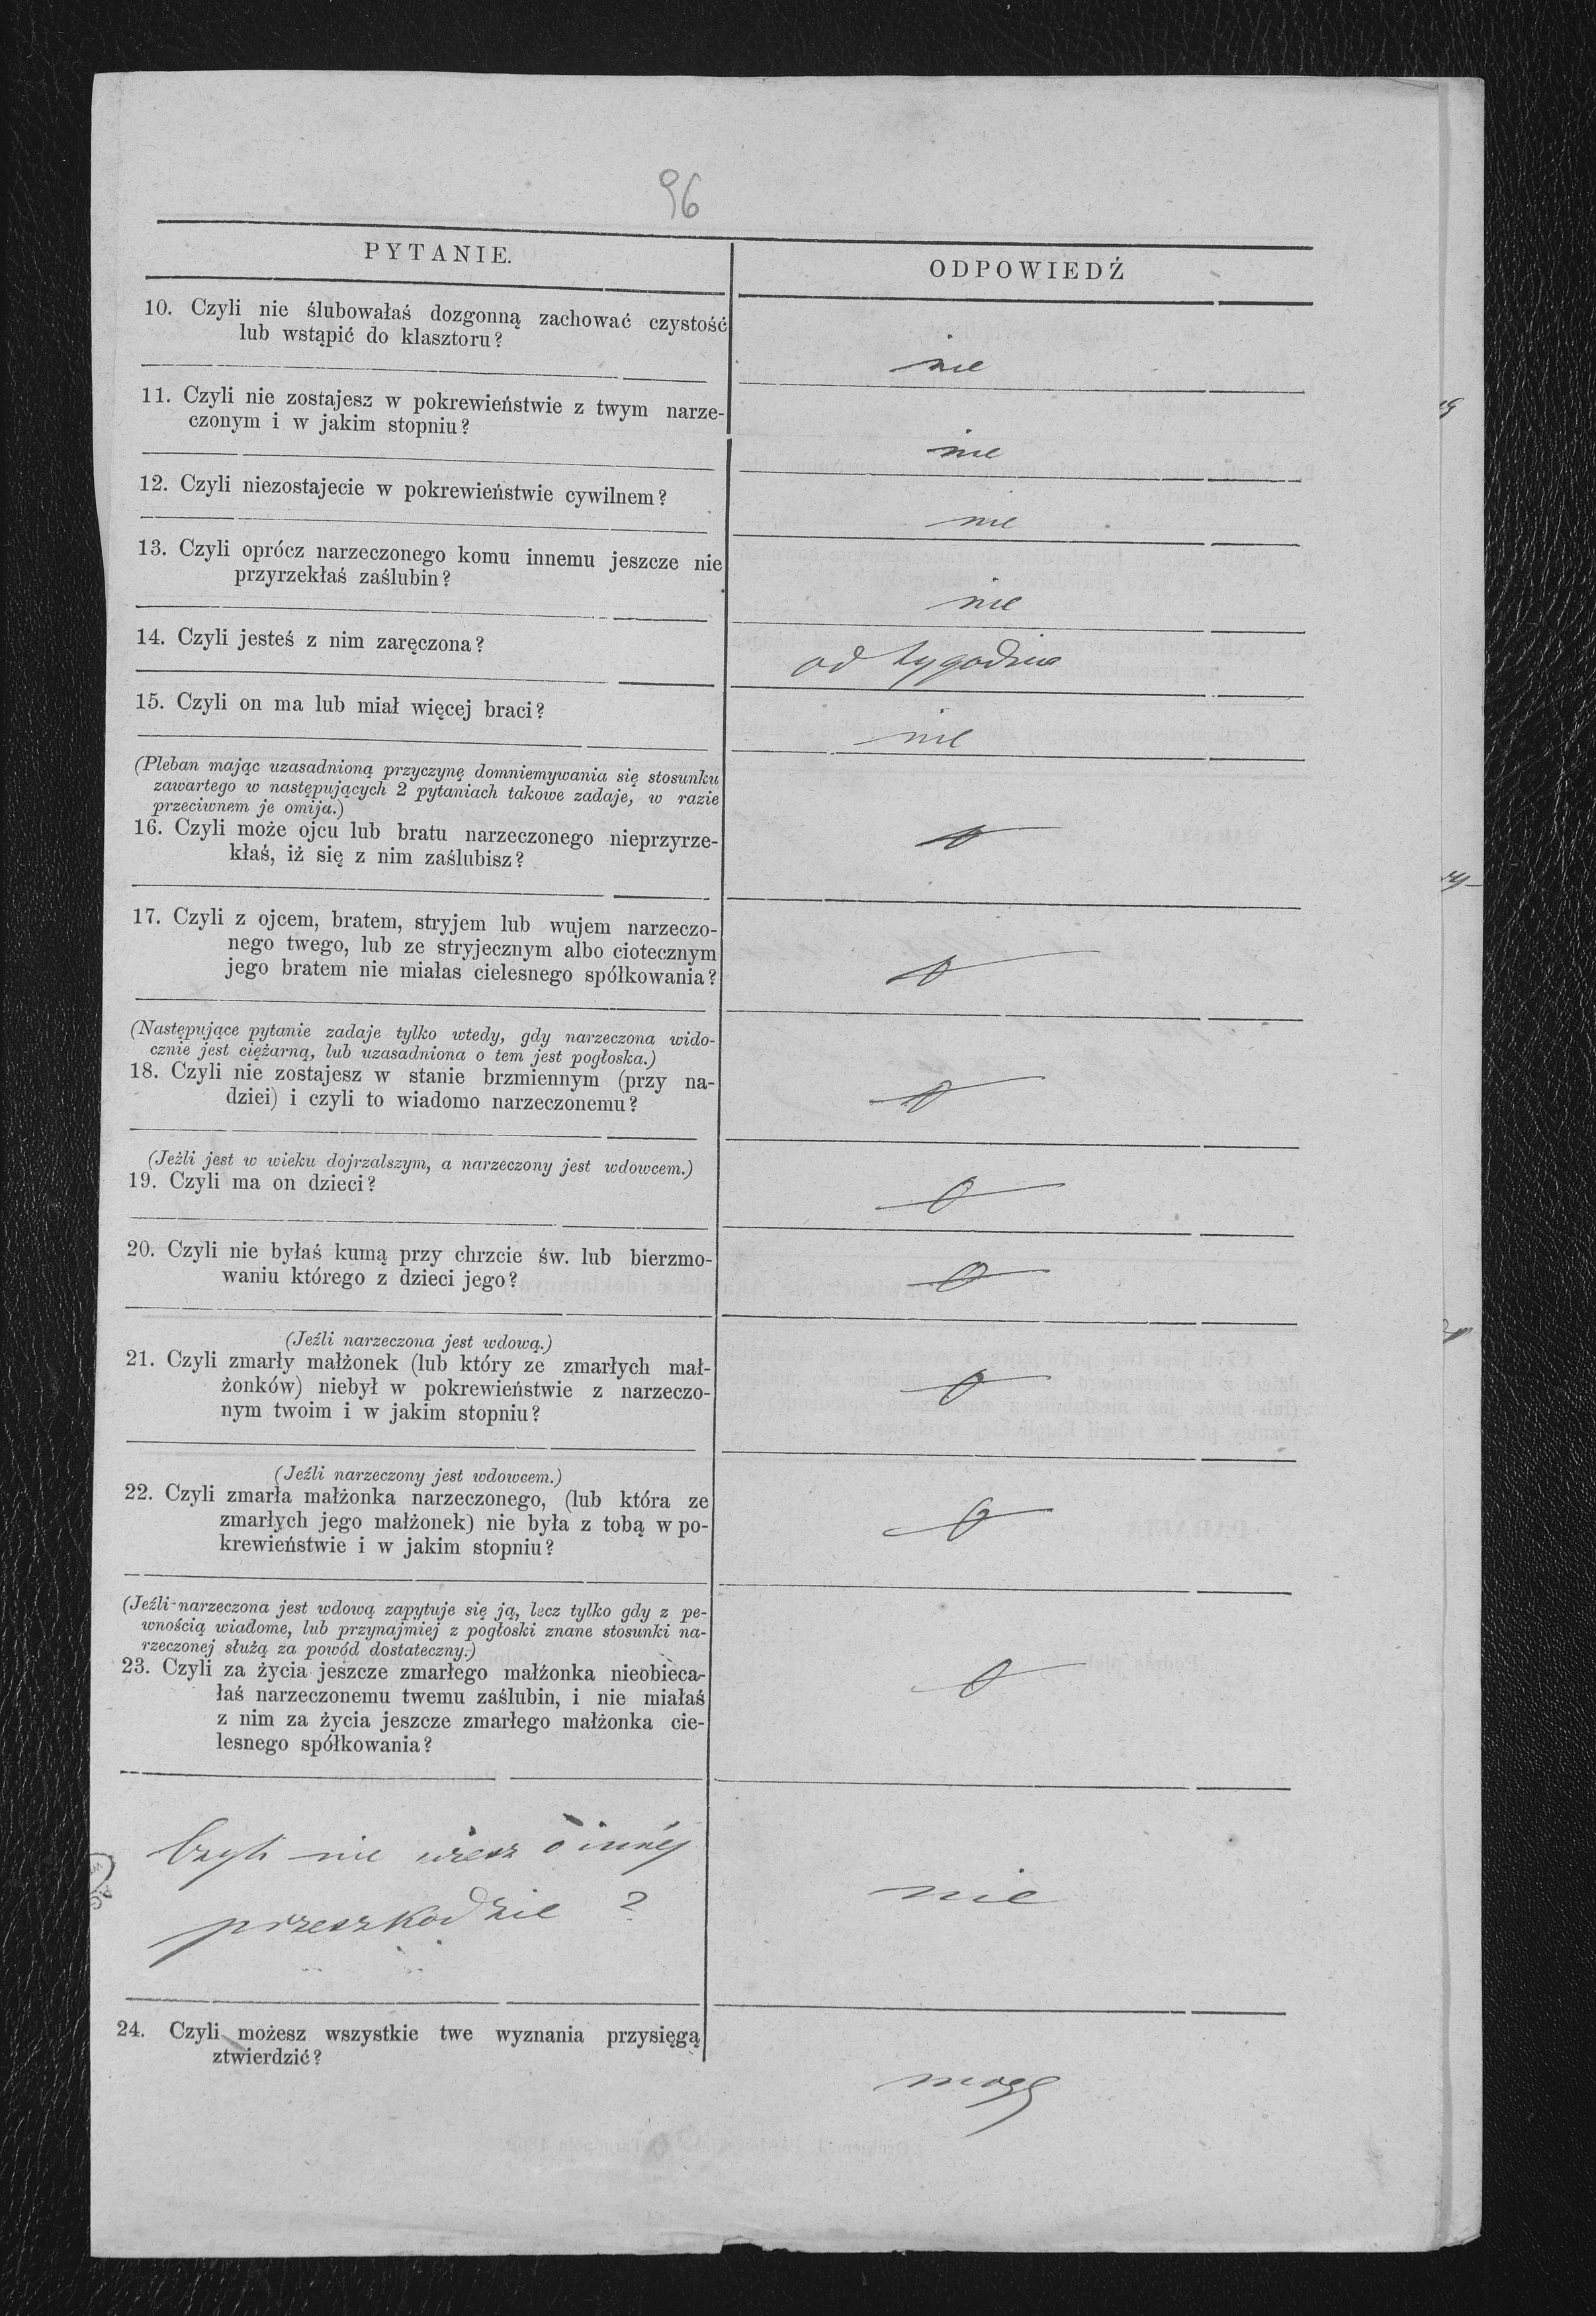 96
PYTANIE.
ODPOWIEDŹ
10. Czyli nie ślubowałaś dozgonną zachować czystość
lub wstąpić do klasztoru?
nie
11. Czyli nie zostajesz w pokrewieństwie z twym narze-
czonym i w jakim stopniu?
nie
12. Czyli niezostajecie w pokrewieństwie cywilnem?
nie
13. Czyli oprócz narzeczonego komu innemu jeszcze nie
przyrzekłaś zaślubin?
nie
14. Czyli jesteś z nim zaręczona?
od tygodnia
15. Czyli on ma lub miał więcej braci?
nie
(Pleban mając uzasadnioną przyczynę domniemywania się stosunku
zawartego w następujących 2 pytaniach takowe zadaje, w razie
przeciwnem je omija.)
16. Czyli może ojcu lub bratu narzeczonego nieprzyrze-
kłaś, iż się z nim zaślubisz?
17. Czyli z ojcem, bratem, stryjem lub wujem narzeczo-
nego twego, lub ze stryjecznym albo ciotecznym
jego bratem nie miałas cielesnego spółkowania?
(Następujące pytanie zadaje tylko wtedy, gdy narzeczona wido-
cznie jest ciężarną, lub uzasadniona o tem jest pogłoska.)
18. Czyli nie zostajesz w stanie brzmiennym (przy na-
dziei) i czyli to wiadomo narzeczonemu?
(Jeżli jest w wieku dojrzalszym, a narzeczony jest wdowcem.)
19. Czyli ma on dzieci?
20. Czyli nie byłaś kumą przy chrzcie św. lub bierzmo-
waniu którego z dzieci jego?
(Jeźli narzeczona jest wdową.)
21. Czyli zmarły małżonek (lub który ze zmarłych mał-
żonków) niebył w pokrewieństwie z narzeczo-
nym twoim i w jakim stopniu?
(Jeźli narzeczony jest wdowcem.)
22. Czyli zmarła małżonka narzeczonego, (lub która ze
zmarłych jego małżonek) nie była z tobą w po-
krewieństwie i w jakim stopniu?
(Jeźli narzeczona jest wdową zapytuje się ją, lecz tylko gdy z pe-
wnością wiadome, lub przynajmiej z pogłoski znane stosunki na-
rzeczonej służą za powód dostateczny.)
23. Czyli za życia jeszcze zmarłego małżonka nieobieca-
łaś narzeczonemu twemu zaślubin, i nie miałaś
z nim za życia jeszcze zmarłego małżonka cie-
lesnego spółkowania?
Czyli nie wiesz o innej
przeszkodzie ?
nie
24. Czyli możesz wszystkie twe wyznania przysięgą
ztwierdzić?
mogę